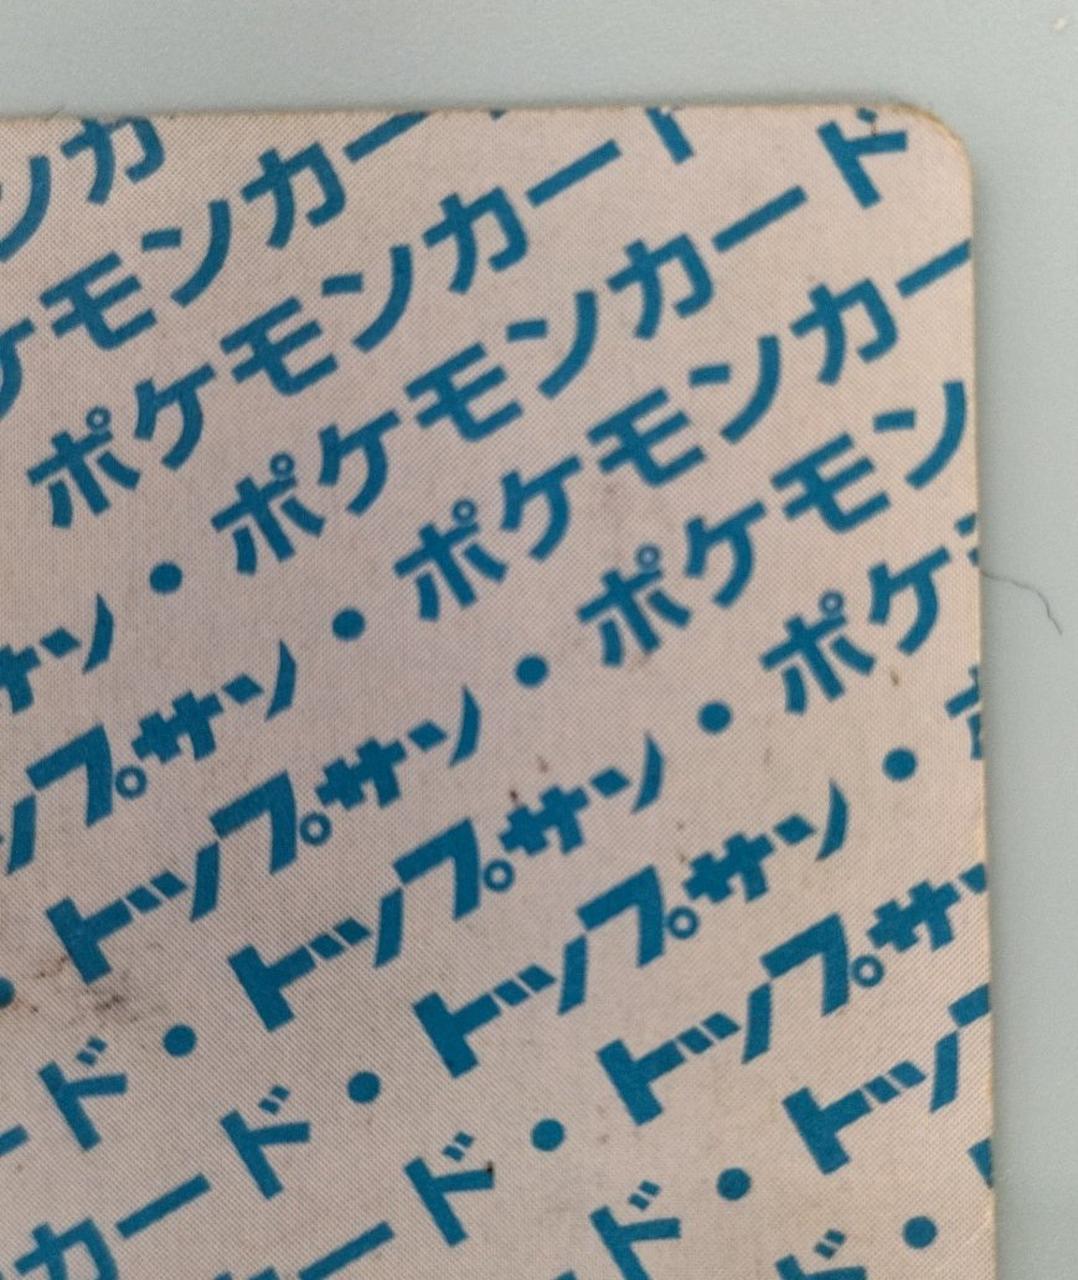 ンカ
ケモンカー
ポケモンカード
サン・ポケモンカード
ップサン・ポケモンカー
・トップサン・ポケモン
ード・トップサン・ポケ
カード・トップサン・
ード・トップサ
ド・トッ
ド・